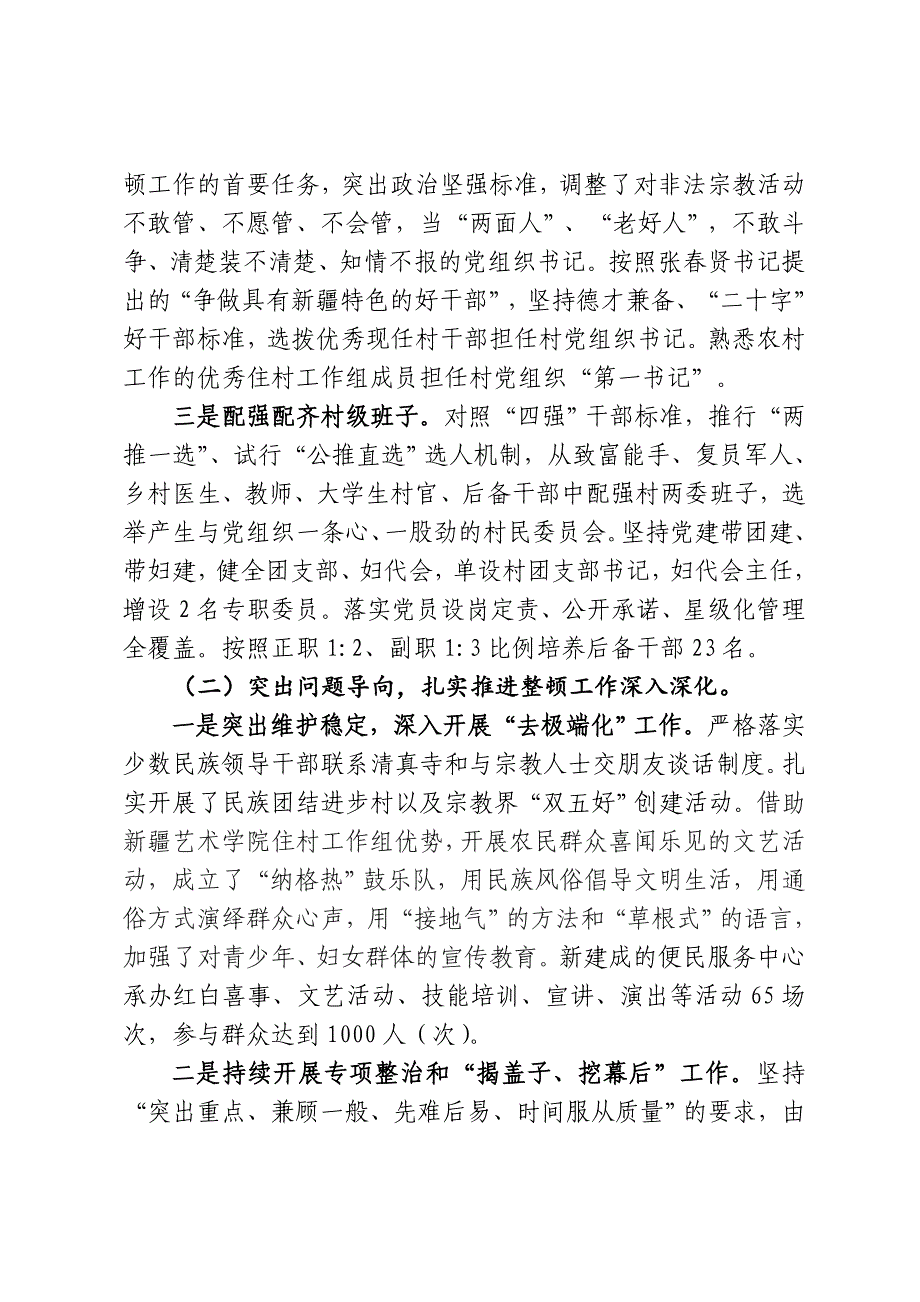 顿工作的首要任务，突出政治坚强标准，调整了对非法宗教活动
不敢管、不愿管、不会管，当“两面人”、“老好人”，不敢斗
争、清楚装不清楚、知情不报的党组织书记。按照张春贤书记提
出的“争做具有新疆特色的好干部”，坚持德才兼备、“二十字”
好干部标准，选拨优秀现任村干部担任村党组织书记。熟悉农村
工作的优秀住村工作组成员担任村党组织“第一书记”。
三是配强配齐村级班子。对照“四强”干部标准，推行“两
推一选”、试行“公推直选”选人机制，从致富能手、复员军人、
乡村医生、教师、大学生村官、后备干部中配强村两委班子，选
举产生与党组织一条心、一股劲的村民委员会。坚持党建带团建、
带妇建，健全团支部、妇代会，单设村团支部书记，妇代会主任，
增设2名专职委员。落实党员设岗定责、公开承诺、星级化管理
全覆盖。按照正职1:2、副职1:3比例培养后备干部23名。
（二）突出问题导向，扎实推进整顿工作深入深化。
一是突出维护稳定，深入开展“去极端化”工作。严格落实
少数民族领导干部联系清真寺和与宗教人士交朋友谈话制度。扎
实开展了民族团结进步村以及宗教界“双五好”创建活动。借助
新疆艺术学院住村工作组优势，开展农民群众喜闻乐见的文艺活
动，成立了“纳格热”鼓乐队，用民族风俗倡导文明生活，用通
俗方式演绎群众心声，用“接地气”的方法和“草根式”的语言，
加强了对青少年、妇女群体的宣传教育。新建成的便民服务中心
承办红白喜事、文艺活动、技能培训、宣讲、演出等活动65场
次，参与群众达到1000人（次）。
二是持续开展专项整治和“揭盖子、挖幕后”工作。坚持
“突出重点、兼顾一般、先难后易、时间服从质量”的要求，由